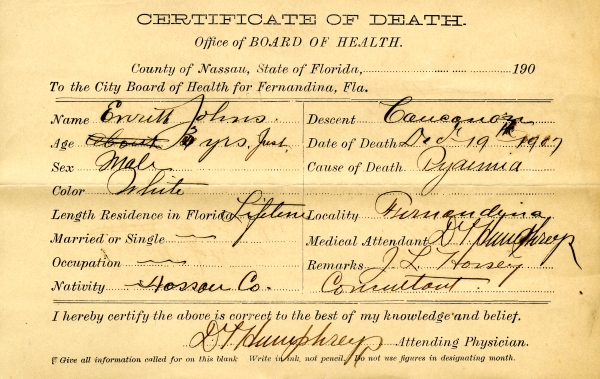 CERTIFICATE OF DEATH.
Office of BOARD OF HEALTH.
County of Nassau, State of Florida, 190
To the City Board of Health for Fernandina, Fla.
Name Johns.
Age About 3 yrs. Just
Sex Male
Color White
Length Residence in Florida Lifetime
Married or Single —
Occupation —
Nativity Nassau Co.
Descent
Date of Death Oct 19th 1907
Cause of Death Pyaemia
Locality Fernandina
Medical Attendant D. G. Humphreys
Remarks J L Horsey
Consultant.
I hereby certify the above is correct to the best of my knowledge and belief.
D. G. Humphreys Attending Physician.
Give all information called for on this blank Write in ink, not pencil. Do not use figures in designating month.